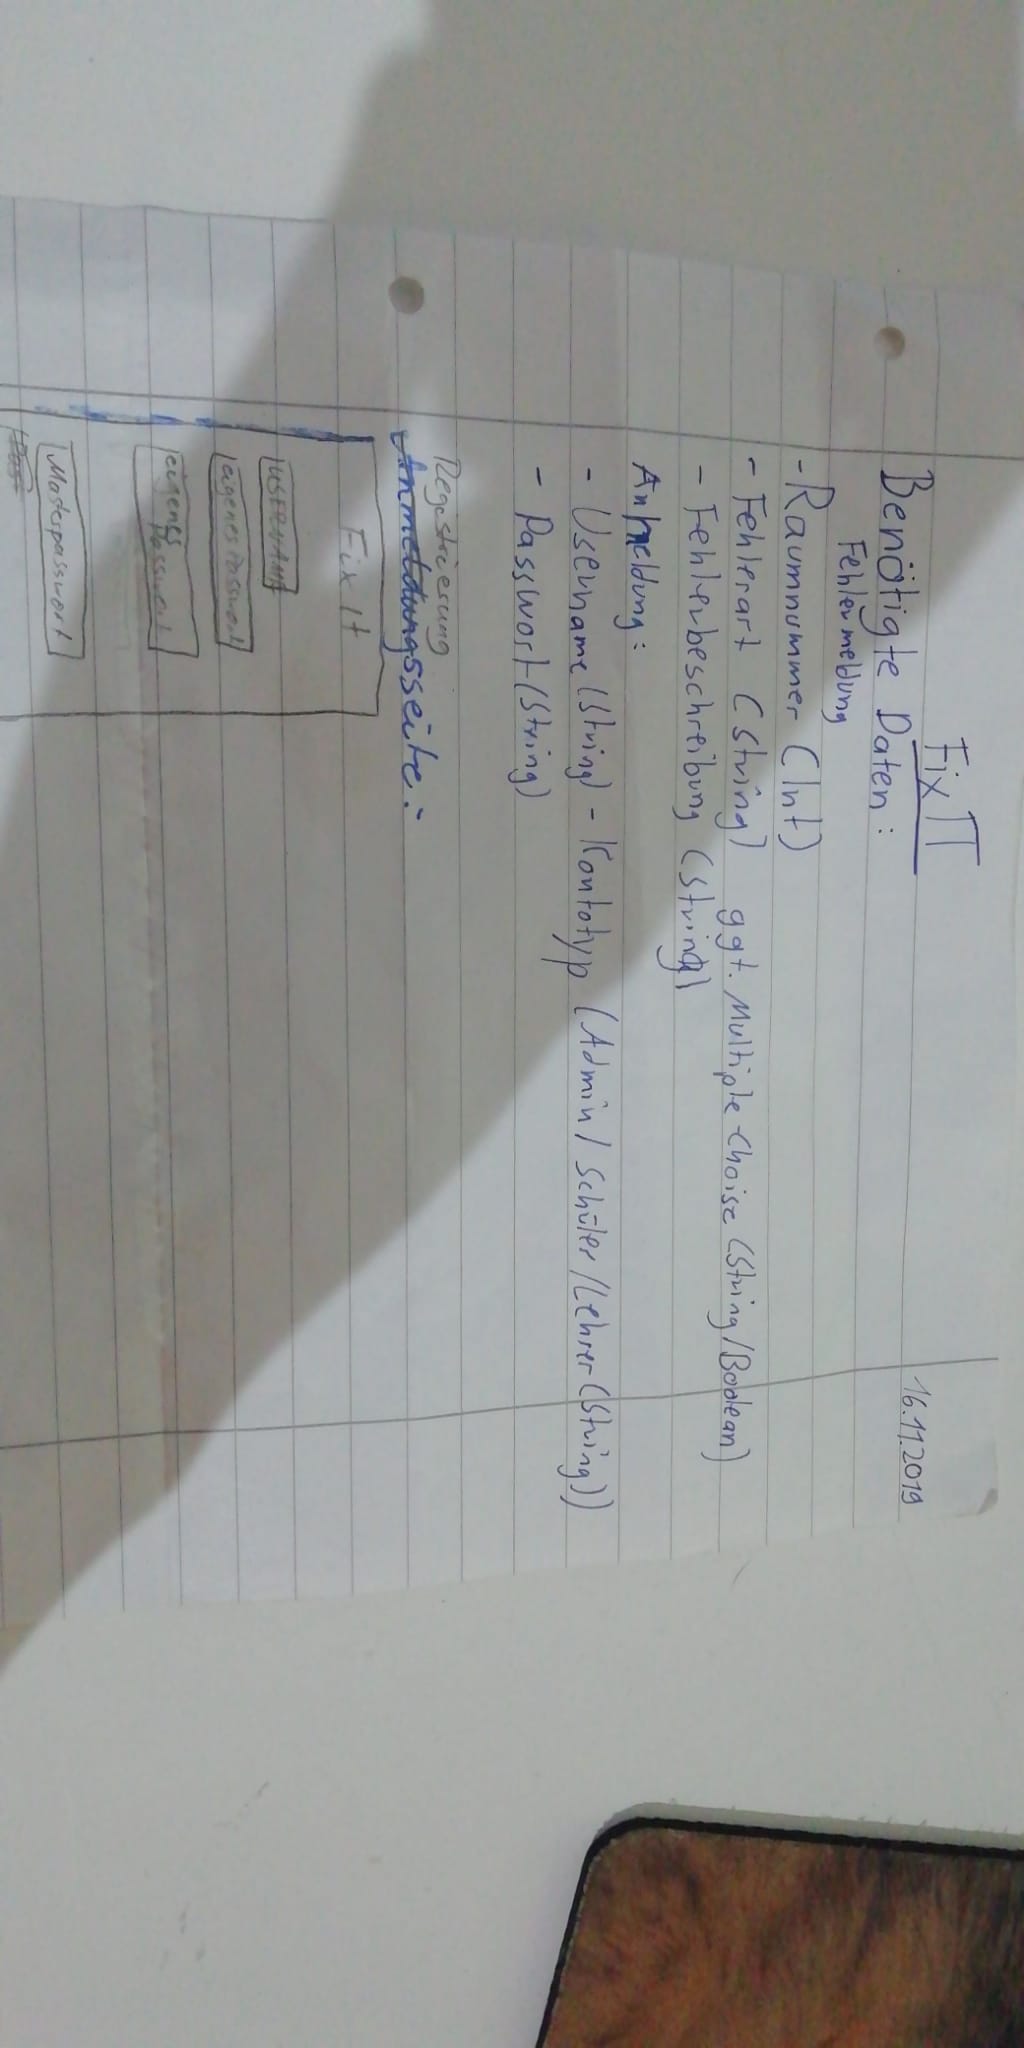 Fix IT
16.11.2019
Benötigte Daten:
Fehlermeldung
- Raumnummer (Int)
- Fehlerart (String) ggt. Multiple-Choise (String/Boolean)
- Fehlerbeschreibung (String)
Anmeldung:
- Username (String) - Kontotyp (Admin/Schüler/Lehrer(String))
- Passwort (String)
Registrierung
Anmeldungsseite:
Fix It
username
eigenes Passwort
eigenes Passwort
Masterpasswort